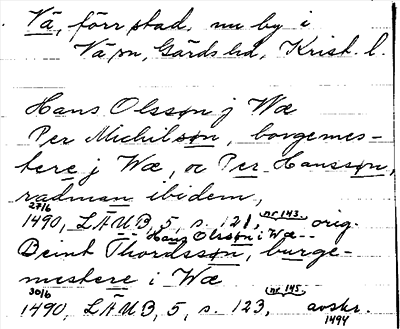 Vä, förr stad, nu by i
Vä sn, Gärds hd, Krist. l.
Hans Olssøn j Wæ
Per Michilsøn, borgemes-
tere j Wæ, oc Per Hanssøn,
radman ibidem,
27/6
1490, LÄUB, 5, s. 121, nr 143. orig.
Hans Olssøn i Wæ --
Beint Thordssøn, burge-
mestere i Wæ
30/6
1490, LÄUB, 5, s. 123, nr 145. avskr.
1494